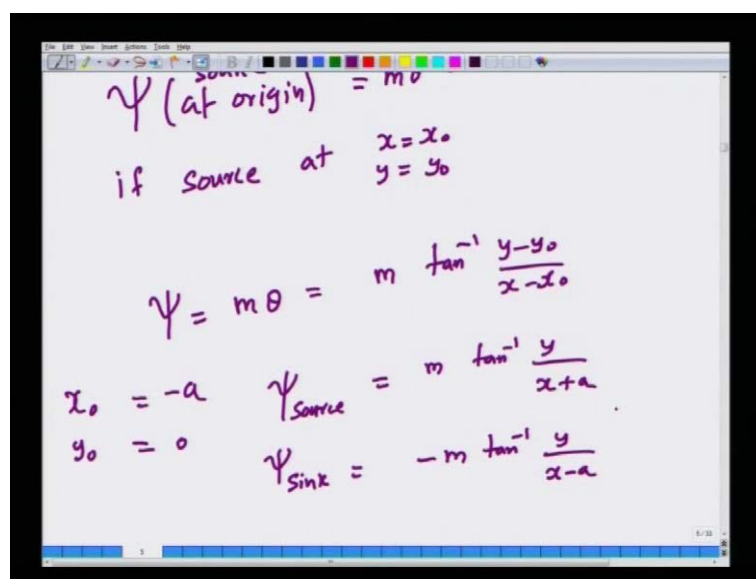 File Edit View Insert Actions Tools Help
Ψ (at origin) = mθ
if source at x = x₀
y = y₀
Ψ = mθ = m tan⁻¹ y-y₀ / x-x₀
x₀ = -a Ψsource = m tan⁻¹ y / x+a
y₀ = 0 Ψsink = -m tan⁻¹ y / x-a
5